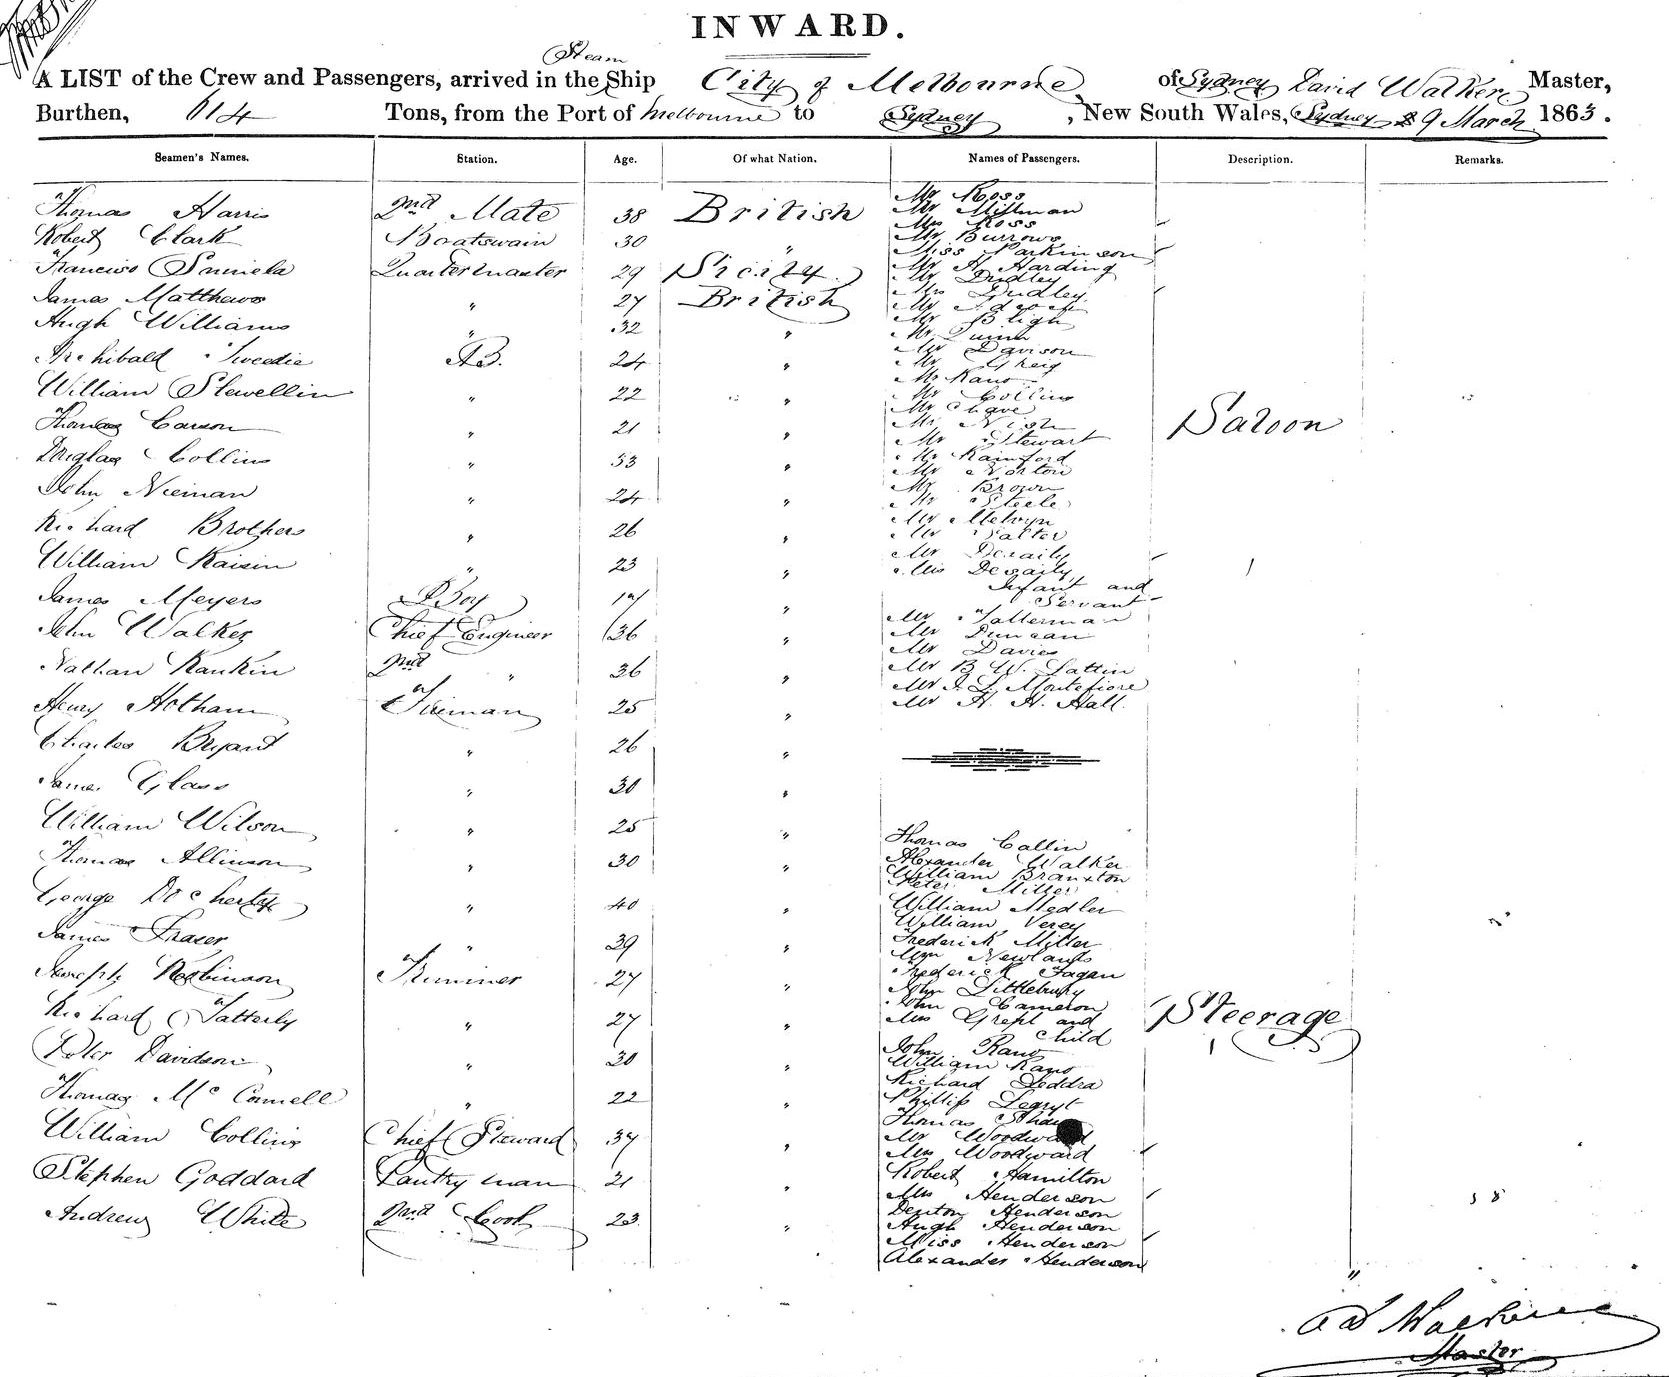 INWARD.
Steam
A LIST of the Crew and Passengers, arrived in the Ship City of Melbourne of Sydney David Walker Master,
Burthen, 614 Tons, from the Port of Melbourne to Sydney, New South Wales, Sydney 9 March 1863.
Seamen's Names. Station. Age. Of what Nation. Names of Passengers. Description. Remarks.
Thomas Harris 2nd Mate 38 British
Robert Clark Boatswain 30 "
Francisco Quartermaster 29 Sicily
James Matthews " 27 British
Hugh Williams " 32 "
Archibald Tweedie AB. 24 "
William Slewellin " 22 "
Thomas Carson " 21 "
Douglas Collins " 53 "
John Nieman " 24 "
Richard Brothers " 26 "
William Raisin " 23 "
James Meyers Boy 17 "
John Walker Chief Engineer 36 "
Nathan Rankin 2nd " 36 "
Henry Hotham Fireman 25 "
Charles Bryant " 26 "
James Glass " 30 "
William Wilson " 25 "
Thomas Allinson " 30 "
George Docherty " 40 "
James Frazer " 39 "
Joseph Robinson Trimmer 27 "
Richard Tatterly " 27 "
Peter Davidson " 30 "
Thomas McConnell " 22 "
William Collins Chief Steward 34 "
Stephen Goddard Pantryman 21 "
Andrew White 2nd Cook 23 "
Mr Ross
Mr Millman
Mrs Ross
Mr Burrows
Miss Parkinson
Mr H. Harding
Mr Dudley
Mrs Dudley
Mr
Mr Bligh
Mr Quinn
Mr Davison
Mr Greig
Mr Rano
Mr Collins
Mr Chave
Mr Nish
Mr Stewart
Mr Rainford
Mr Norton
Mr Brown
Mr Steele
Mr Melvyn
Mr Salter
Mr Deraily
Mrs Deraily
Infant and
Servant
Mr Tallerman
Mr Duncan
Mr Davies
Mr B. W. Lattin
Mr J. L. Montefiore
Mr H. H. Hall
Saloon
Thomas Callin
Alexander Walker
William Branxton
Peter Miller
William Medler
William Verey
Frederick Miller
Wm Newlands
Frederick Fagan
John Littlebury
John Cameron
Mrs and
Child
John Rano
William Rano
Richard Leddra
Phillip
Thomas
Mr Woodward
Mrs Woodward
Robert Hamilton
Mrs Henderson
Denton Henderson
Hugh Henderson
Miss Henderson
Alexander Henderson
Steerage
Master